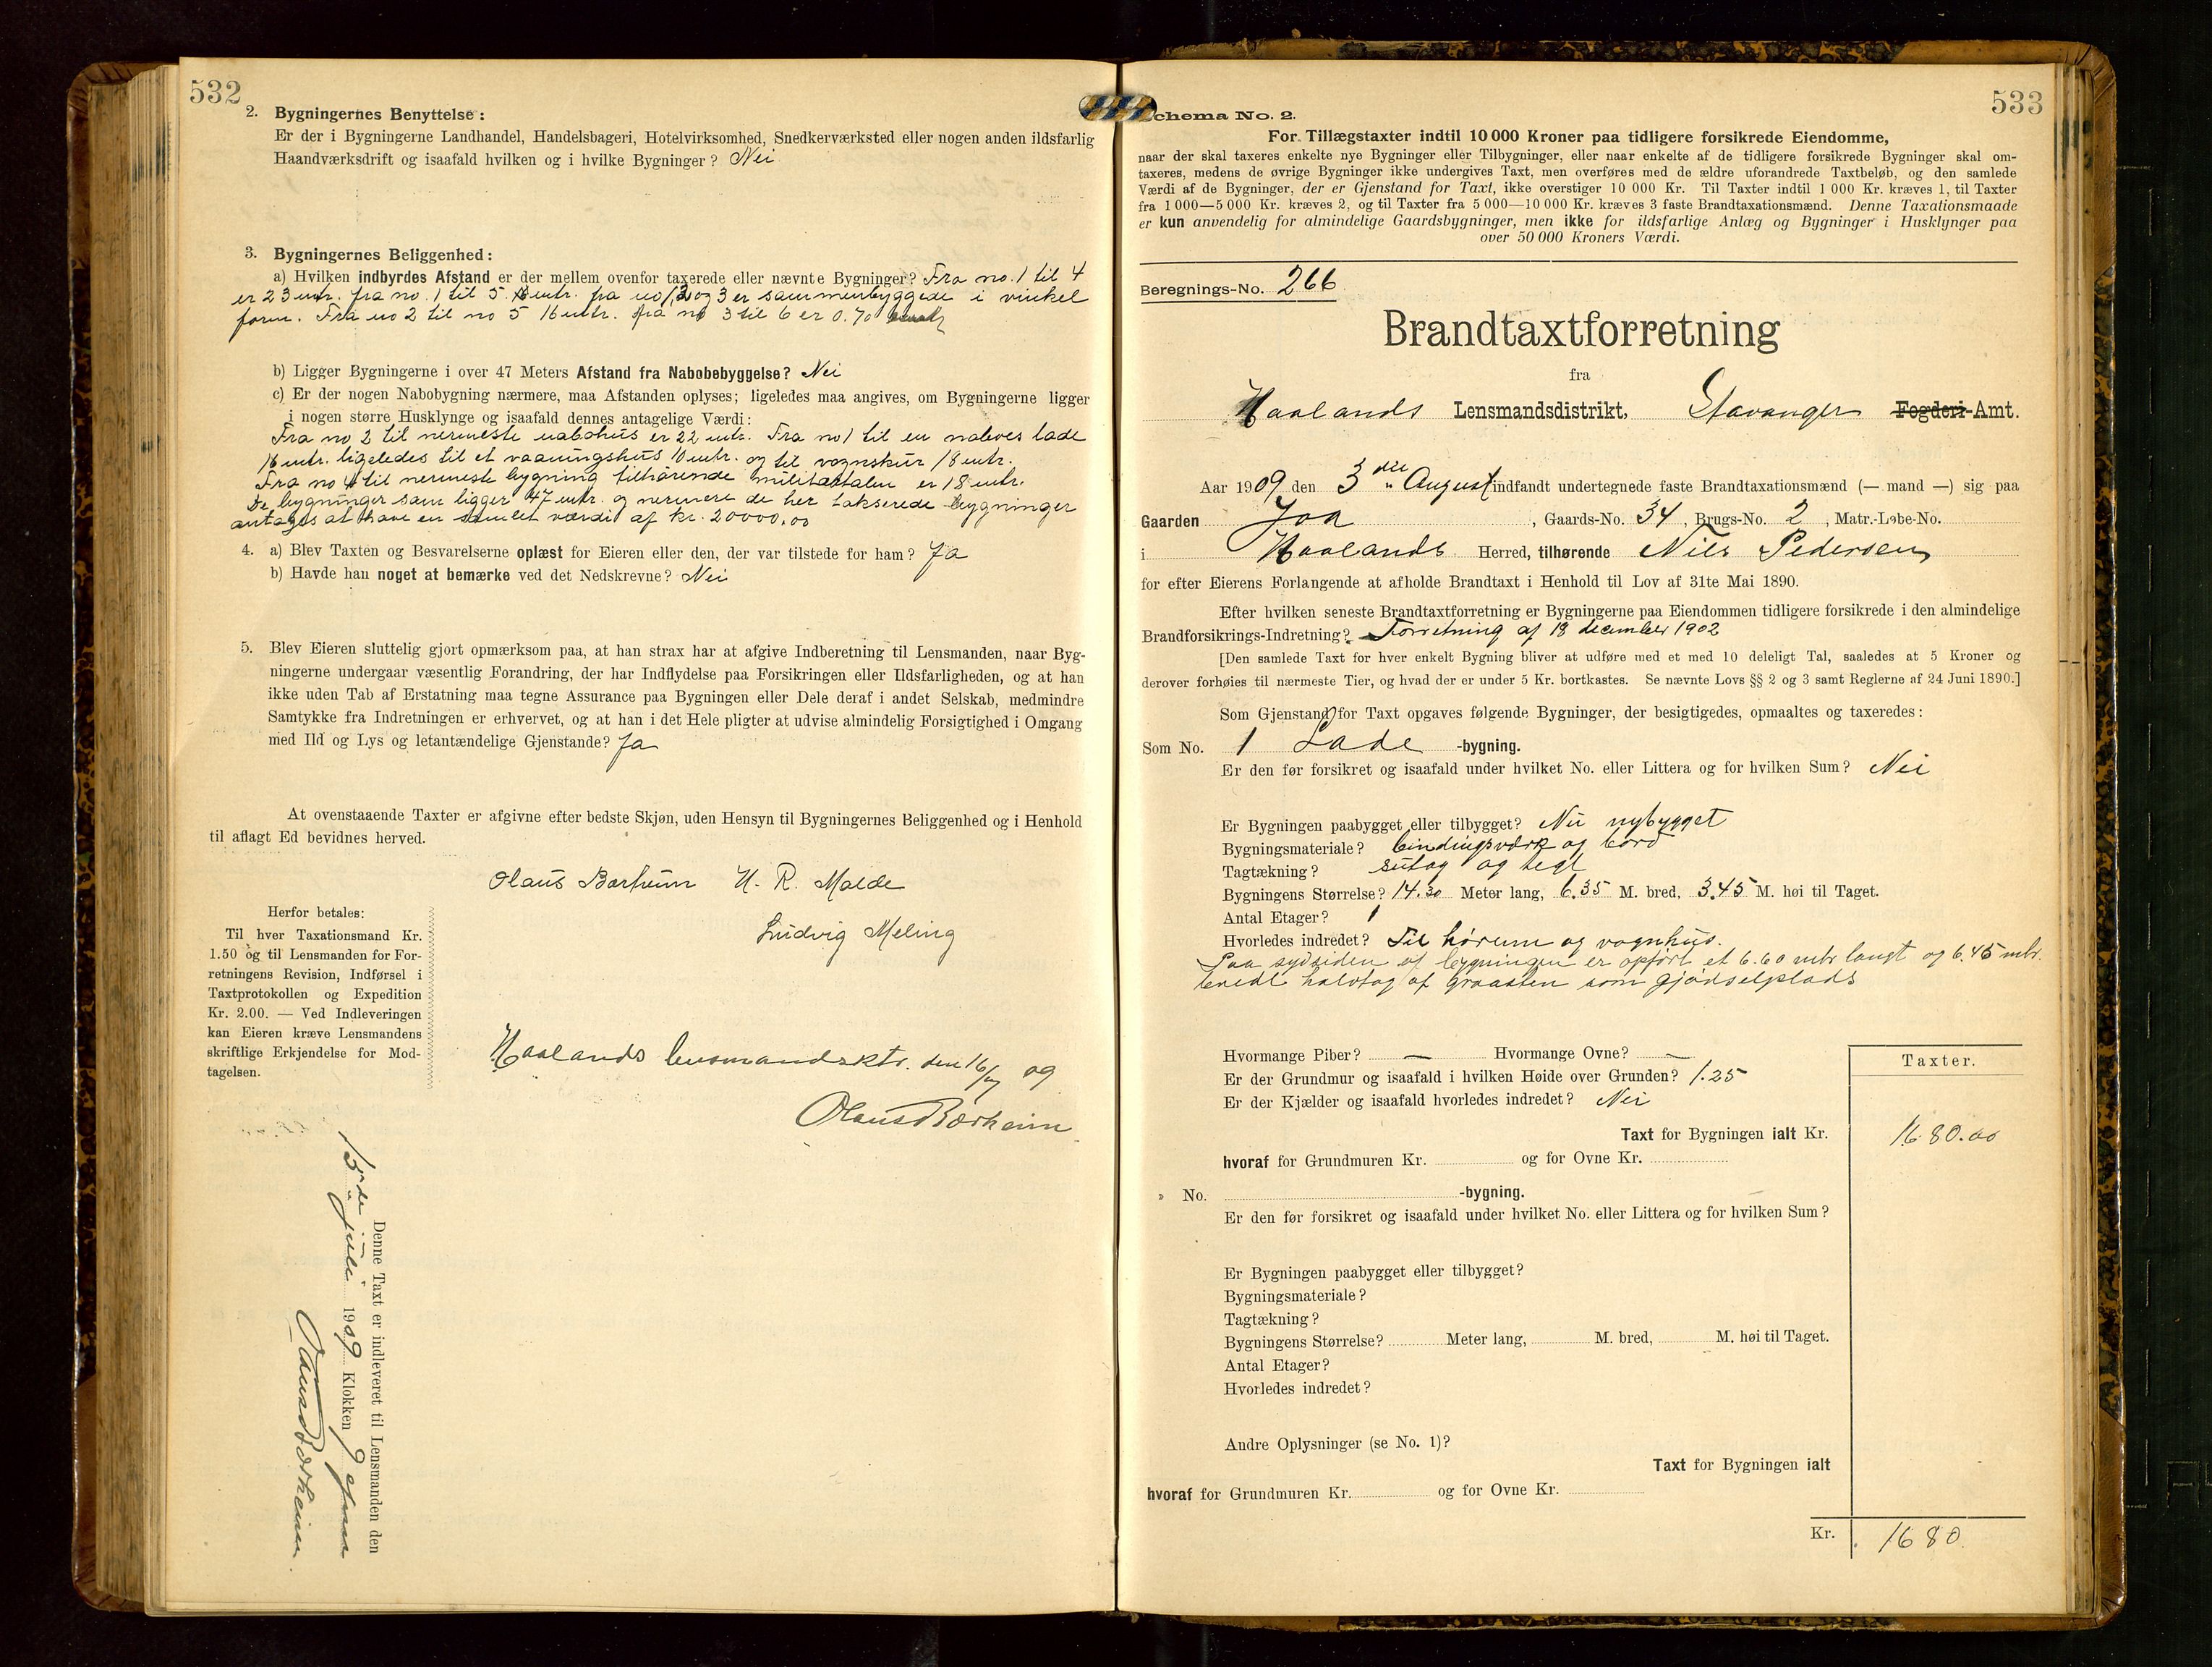 532
2. Bygningernes Benyttelse:
Er der i Bygningerne Landhandel, Handelsbageri, Hotelvirksomhed, Snedkerværksted eller nogen anden ildsfarlig
Haandværksdrift og isaafald hvilken og i hvilke Bygninger? Nei
3. Bygningernes Beliggenhed:
a) Hvilken indbyrdes Afstand er der mellem ovenfor taxerede eller nævnte Bygninger? Fra no. 1 til 4
er 23 mtr. fra no. 1 til 5. mtr. fra no 1, 2 og 3 er sammenbyggede i vinkel
form. Fra no 2 til no 5 16 mtr. fra no 3 til 6 er 0.70
b) Ligger Bygningerne i over 47 Meters Afstand fra Nabobebyggelse? Nei
c) Er der nogen Nabobygning nærmere, maa Afstanden oplyses; ligeledes maa angives, om Bygningerne ligger
i nogen større Husklynge og isaafald dennes antagelige Værdi:
Fra no 2 til nermeste nabohus er 22 mtr. Fra no 1 til en naboes lade
16 mtr. ligeledes til et vaaningshus 10 mtr. og til vognskur 18 mtr.
Fra no 4 til nermeste bygning tilhørende er 18 mtr.
De bygninger som ligger 47 mtr. og nermere de her takserede bygninger
antages at have en samlet værdi af kr. 20000,00
4. a) Blev Taxten og Besvarelserne oplæst for Eieren eller den, der var tilstede for ham? Ja
b) Havde han noget at bemærke ved det Nedskrevne? Nei
5. Blev Eieren sluttelig gjort opmærksom paa, at han strax har at afgive Indberetning til Lensmanden, naar Byg-
ningerne undergaar væsentlig Forandring, der har Indflydelse paa Forsikringen eller Ildsfarligheden, og at han
ikke uden Tab af Erstatning maa tegne Assurance paa Bygningen eller Dele deraf i andet Selskab, medmindre
Samtykke fra Indretningen er erhvervet, og at han i det Hele pligter at udvise almindelig Forsigtighed i Omgang
med Ild og Lys og letantændelige Gjenstande? Ja
At ovenstaaende Taxter er afgivne efter bedste Skjøn, uden Hensyn til Bygningernes Beliggenhed og i Henhold
til aflagt Ed bevidnes herved.
Olaus Børheim H. R. Malde
Ludvig Meling
Herfor betales:
Til hver Taxationsmand Kr.
1.50 og til Lensmanden for For-
retningens Revision, Indførsel i
Taxtprotokollen og Expedition
Kr. 2.00. — Ved Indleveringen
kan Eieren kræve Lensmandens
skriftlige Erkjendelse for Mod-
tagelsen.
Haalands lensmandsktr. den 16/7 09
Olaus Børheim
Denne Taxt er indleveret til Lensmanden den
15de juli 1909 Klokken 9 efm
Olaus Børheim
533
chema No. 2.
For Tillægstaxter indtil 10 000 Kroner paa tidligere forsikrede Eiendomme,
naar der skal taxeres enkelte nye Bygninger eller Tilbygninger, eller naar enkelte af de tidligere forsikrede Bygninger skal om-
taxeres, medens de øvrige Bygninger ikke undergives Taxt, men overføres med de ældre uforandrede Taxtbeløb, og den samlede
Værdi af de Bygninger, der er Gjenstand for Taxt, ikke overstiger 10 000 Kr. Til Taxter indtil 1 000 Kr. kræves 1, til Taxter
fra 1 000—5 000 Kr. kræves 2, og til Taxter fra 5 000—10 000 Kr. kræves 3 faste Brandtaxationsmænd. Denne Taxationsmaade
er kun anvendelig for almindelige Gaardsbygninger, men ikke for ildsfarlige Anlæg og Bygninger i Husklynger paa
over 50 000 Kroners Værdi.
Beregnings-No. 266
Brandtaxtforretning
fra
Haalands Lensmandsdistrikt, Stavanger Fogderi-Amt.
Aar 1909 den 3die August indfandt undertegnede faste Brandtaxationsmænd (— mand —) sig paa
Gaarden Joa, Gaards-No. 34, Brugs-No. 2, Matr.-Løbe-No.
i Haalands Herred, tilhørende Nils Pedersen
for efter Eierens Forlangende at afholde Brandtaxt i Henhold til Lov af 31te Mai 1890.
Efter hvilken seneste Brandtaxtforretning er Bygningerne paa Eiendommen tidligere forsikrede i den almindelige
Brandforsikrings-Indretning? Forretning af 18 december 1902
[Den samlede Taxt for hver enkelt Bygning bliver at udføre med et med 10 deleligt Tal, saaledes at 5 Kroner og
derover forhøies til nærmeste Tier, og hvad der er under 5 Kr. bortkastes. Se nævnte Lovs §§ 2 og 3 samt Reglerne af 24 Juni 1890.]
Som Gjenstand for Taxt opgaves følgende Bygninger, der besigtigedes, opmaaltes og taxeredes:
Som No. 1 Lade -bygning.
Er den før forsikret og isaafald under hvilket No. eller Littera og for hvilken Sum? Nei
Er Bygningen paabygget eller tilbygget? Nei nybygget
Bygningsmateriale? bindingsværk og bord
Tagtækning? sutag og tegl
Bygningens Størrelse? 14.30 Meter lang, 6.35 M. bred, 3.45 M. høi til Taget.
Antal Etager? 1
Hvorledes indredet? Til hørum og vognhus.
Paa sydsiden af bygningen er opført et 6.60 mtr langt og 6.45 mtr.
bredt halvtag af graasten som gjødselplads
Hvormange Piber? — Hvormange Ovne? —
Er der Grundmur og isaafald i hvilken Høide over Grunden? 1.25
Er der Kjælder og isaafald hvorledes indredet? Nei
Taxter.
Taxt for Bygningen ialt Kr. 1680.00
hvoraf for Grundmuren Kr. og for Ovne Kr.
» No. -bygning.
Er den før forsikret og isaafald under hvilket No. eller Littera og for hvilken Sum?
Er Bygningen paabygget eller tilbygget?
Bygningsmateriale?
Tagtækning?
Bygningens Størrelse? Meter lang, M. bred, M. høi til Taget.
Antal Etager?
Hvorledes indredet?
Andre Oplysninger (se No. 1)?
Taxt for Bygningen ialt
hvoraf for Grundmuren Kr. og for Ovne Kr.
Kr. 1680.